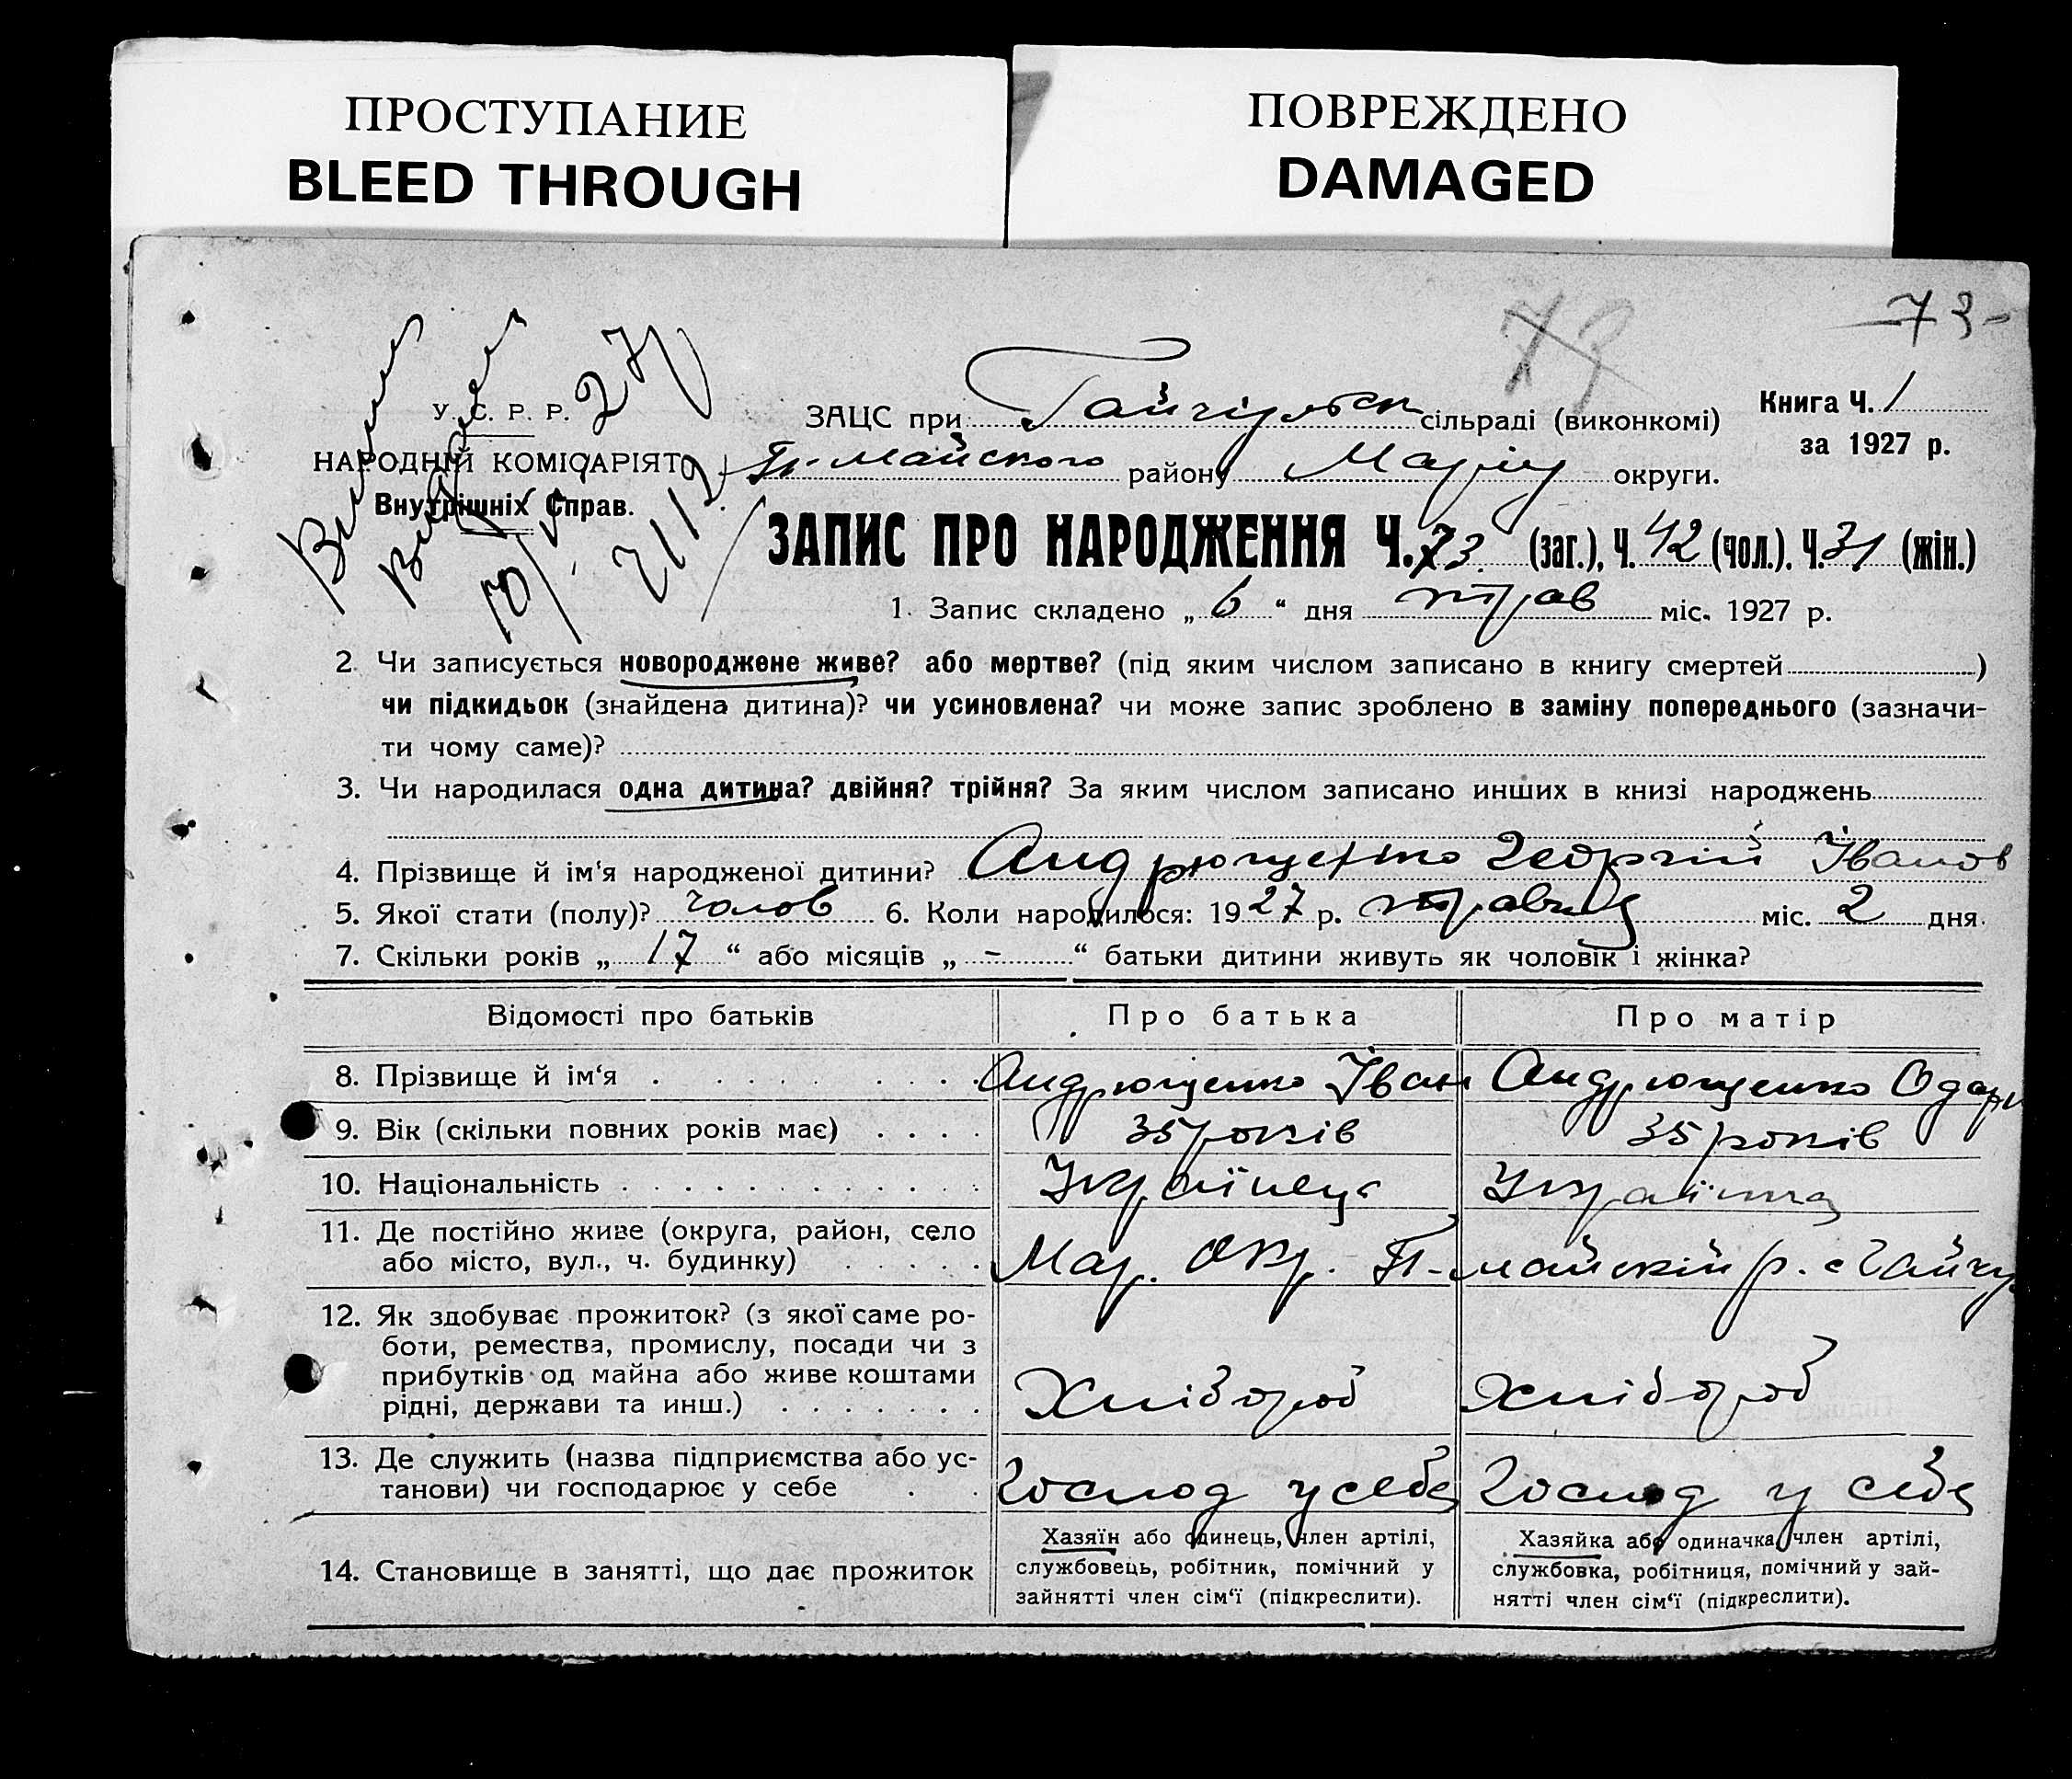 ПРОСТУПАНИЕ
BLEED THROUGH
ПОВРЕЖДЕНО
DAMAGED
73
73-
У. С. Р. Р.
НАРОДНІЙ КОМІСАРІЯТ
Внутрішніх Справ.
27
ЗАЦС при Гайчульск сільраді (виконкомі)
Книга Ч. 1
за 1927 р.
П-Майського району Маріу округи.
ЗАПИС ПРО НАРОДЖЕННЯ Ч. 73 (заг.), Ч. 42 (чол.). Ч. 31 (жін.)
1. Запис складено „ 6 “ дня трав міс. 1927 р.
2. Чи записується новороджене живе? або мертве? (під яким числом записано в книгу смертей )
чи підкидьок (знайдена дитина)? чи усиновлена? чи може запис зроблено в заміну попереднього (зазначи-
ти чому саме)?
3. Чи народилася одна дитина? двійня? трійня? За яким числом записано инших в книзі народжень
4. Прізвище й ім‘я народженої дитини? Андрющенко Георгій Іванов
5. Якої стати (полу)? Чолов 6. Коли народилося: 1927 р. травня міс. 2 дня.
7. Скільки років „ 17 “ або місяців „ - “ батьки дитини живуть як чоловік і жінка?
Відомості про батьків Про батька Про матір
8. Прізвище й ім‘я Андрющенко Іван Андрющенко Одари
9. Вік (скільки повних років має) 35 років 35 років
10. Національність Українець Українка
11. Де постійно живе (округа, район, село
або місто, вул., ч. будинку) Мар. Окр. П-майский р. с Гайчу
12. Як здобуває прожиток? (з якої саме ро-
боти, ремества, промислу, посади чи з
прибутків од майна або живе коштами
рідні, держави та инш.) Хлібороб Хлібороб
13. Де служить (назва підприємства або ус-
танови) чи господарює у себе Господ у себе Господ у себе
14. Становище в занятті, що дає прожиток
Хазяїн або одинець, член артілі,
службовець, робітник, помічний у
зайнятті член сім‘ї (підкреслити).
Хазяйка або одиначка, член артілі,
службовка, робітниця, помічний у зай-
нятті член сім‘ї (підкреслити).